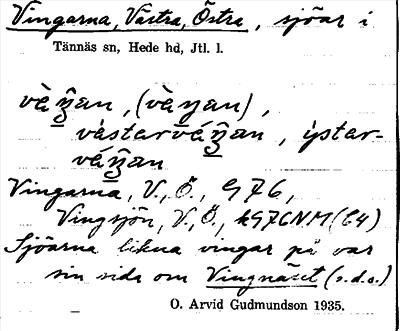 Vingarna, Västra, Östra, sjöar i
Tännäs sn, Hede hd, Jtl. l.
vàŋ̃an, (vàŋan),
västarváŋ̃an, ýstar-
váŋ̃an
Vingarna, V., Ö., G76,
Vingsjön, V., Ö., kG76NM(64)
Sjöarna likna vingar på var
sin sida om Vingnäset (s.d.o.)
O. Arvid Gudmundson 1935.